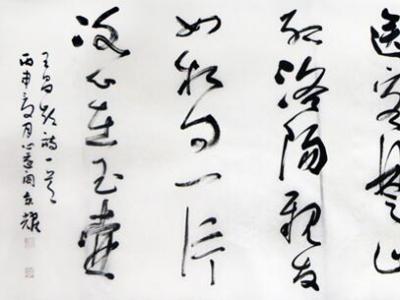 送客楚山
孤洛阳親友
如相问一片
冰心在玉壺
王昌龄诗一首
丙申夏月心